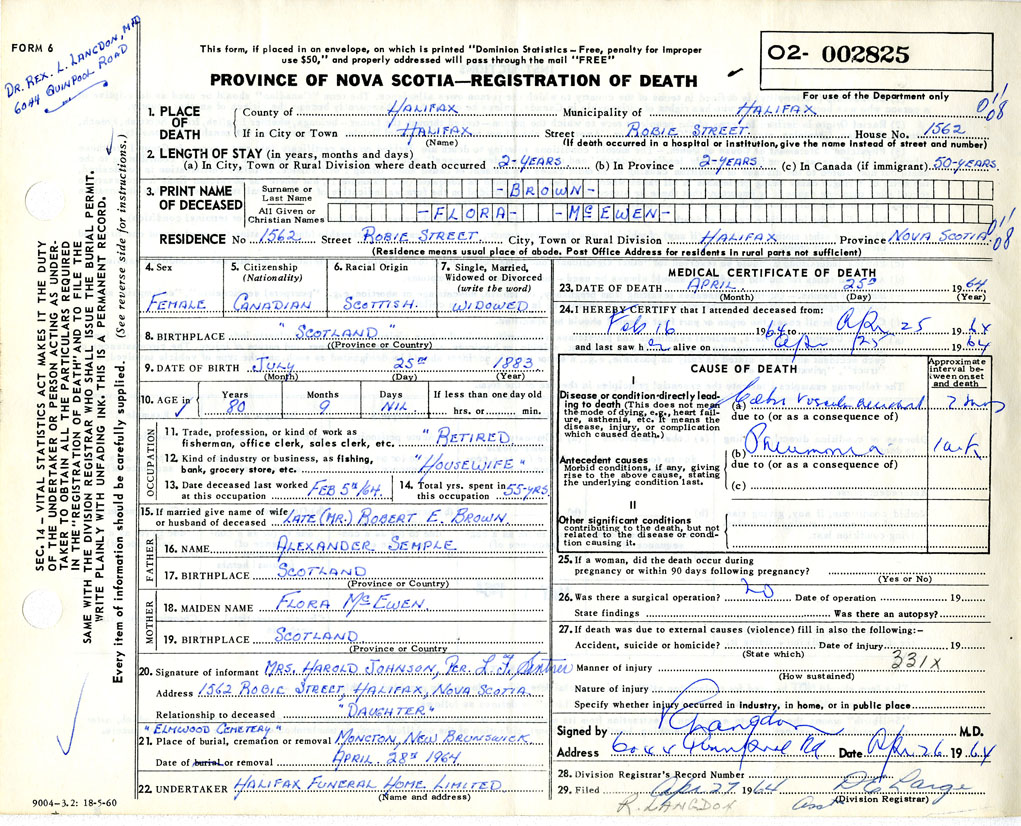 FORM 6
DR. REX. L. LANGDON, MD
6044 QUINPOOL ROAD
This form, if placed in an envelope, on which is printed "Dominion Statistics – Free, penalty for improper
use $50," and properly addressed will pass through the mail "FREE"
PROVINCE OF NOVA SCOTIA—REGISTRATION OF DEATH
O2- 002825
For use of the Department only
1. PLACE OF DEATH County of HALIFAX Municipality of HALIFAX
If in City or Town HALIFAX Street ROBIE STREET. House No. 1562
(Name) (If death occurred in a hospital or institution, give the name instead of street and number)
2. LENGTH OF STAY (in years, months and days)
(a) In City, Town or Rural Division where death occurred 2-YEARS (b) In Province 2-YEARS. (c) In Canada (if immigrant) 50-YEARS.
3. PRINT NAME OF DECEASED
Surname or Last Name -BROWN-
All Given or Christian Names -FLORA- -McEWEN-
RESIDENCE No 1562 Street ROBIE STREET. City, Town or Rural Division HALIFAX Province NOVA SCOTIA
(Residence means usual place of abode. Post Office Address for residents in rural parts not sufficient)
4. Sex FEMALE
5. Citizenship (Nationality) CANADIAN
6. Racial Origin SCOTTISH.
7. Single, Married, Widowed or Divorced (write the word) WIDOWED
8. BIRTHPLACE "SCOTLAND"
(Province or Country)
9. DATE OF BIRTH JULY 25TH 1883
(Month) (Day) (Year)
10. AGE in Years 80 Months 9 Days NIL If less than one day old hrs. or min.
OCCUPATION
11. Trade, profession, or kind of work as fisherman, office clerk, sales clerk, etc. "RETIRED.
12. Kind of industry or business, as fishing, bank, grocery store, etc. "HOUSEWIFE"
13. Date deceased last worked at this occupation FEB 5TH/64.
14. Total yrs. spent in this occupation 55-YRS.
15. If married give name of wife or husband of deceased LATE (MR.) ROBERT E. BROWN.
FATHER
16. NAME ALEXANDER SEMPLE
17. BIRTHPLACE SCOTLAND
(Province or Country)
MOTHER
18. MAIDEN NAME FLORA McEWEN.
19. BIRTHPLACE SCOTLAND.
(Province or Country
20. Signature of informant MRS. HAROLD JOHNSON, PER. L. F.
Address 1562 ROBIE STREET, HALIFAX, NOVA SCOTIA.
Relationship to deceased "DAUGHTER"
"ELMWOOD CEMETERY"
21. Place of burial, cremation or removal MONCTON, NEW BRUNSWICK
Date of burial or removal APRIL. 28TH 1964
22. UNDERTAKER HALIFAX FUNERAL HOME LIMITED
(Name and address)
9004–3.2: 18-5-60
MEDICAL CERTIFICATE OF DEATH
23. DATE OF DEATH APRIL. 25TH 1964
(Month) (Day) (Year)
24. I HEREBY CERTIFY that I attended deceased from:
Feb 16 1964 to Apr 25 1964
and last saw her alive on Apr 25 1964
CAUSE OF DEATH
Approximate interval between onset and death
I
Disease or condition directly leading to death (This does not mean the mode of dying, e.g., heart failure, asthenia, etc. It means the disease, injury, or complication which caused death.)
(a) 2 mos
due to (or as a consequence of)
(b) Pneumonia 1 wk
due to (or as a consequence of)
(c)
Antecedent causes
Morbid conditions, if any, giving rise to the above cause, stating the underlying condition last.
II
Other significant conditions
contributing to the death, but not related to the disease or condition causing it.
25. If a woman, did the death occur during pregnancy or within 90 days following pregnancy?
(Yes or No)
26. Was there a surgical operation? no Date of operation 19
State findings Was there an autopsy?
27. If death was due to external causes (violence) fill in also the following:–
Accident, suicide or homicide? Date of injury 19
(State which)
331x
Manner of injury
(How sustained)
Nature of injury
Specify whether injury occurred in industry, in home, or in public place
Signed by R Langdon M.D.
Address 6044 Quinpool Rd Date Apr 26 1964
28. Division Registrar's Record Number
29. Filed Apr 27 1964
(Division Registrar)
R. LANGDON
SEC. 14 – VITAL STATISTICS ACT MAKES IT THE DUTY
OF THE UNDERTAKER OR PERSON ACTING AS UNDER-
TAKER TO OBTAIN ALL THE PARTICULARS REQUIRED
IN THE "REGISTRATION OF DEATH" AND TO FILE THE
SAME WITH THE DIVISION REGISTRAR WHO SHALL ISSUE THE BURIAL PERMIT.
WRITE PLAINLY WITH UNFADING INK. THIS IS A PERMANENT RECORD.
Every item of information should be carefully supplied. (See reverse side for instructions.)